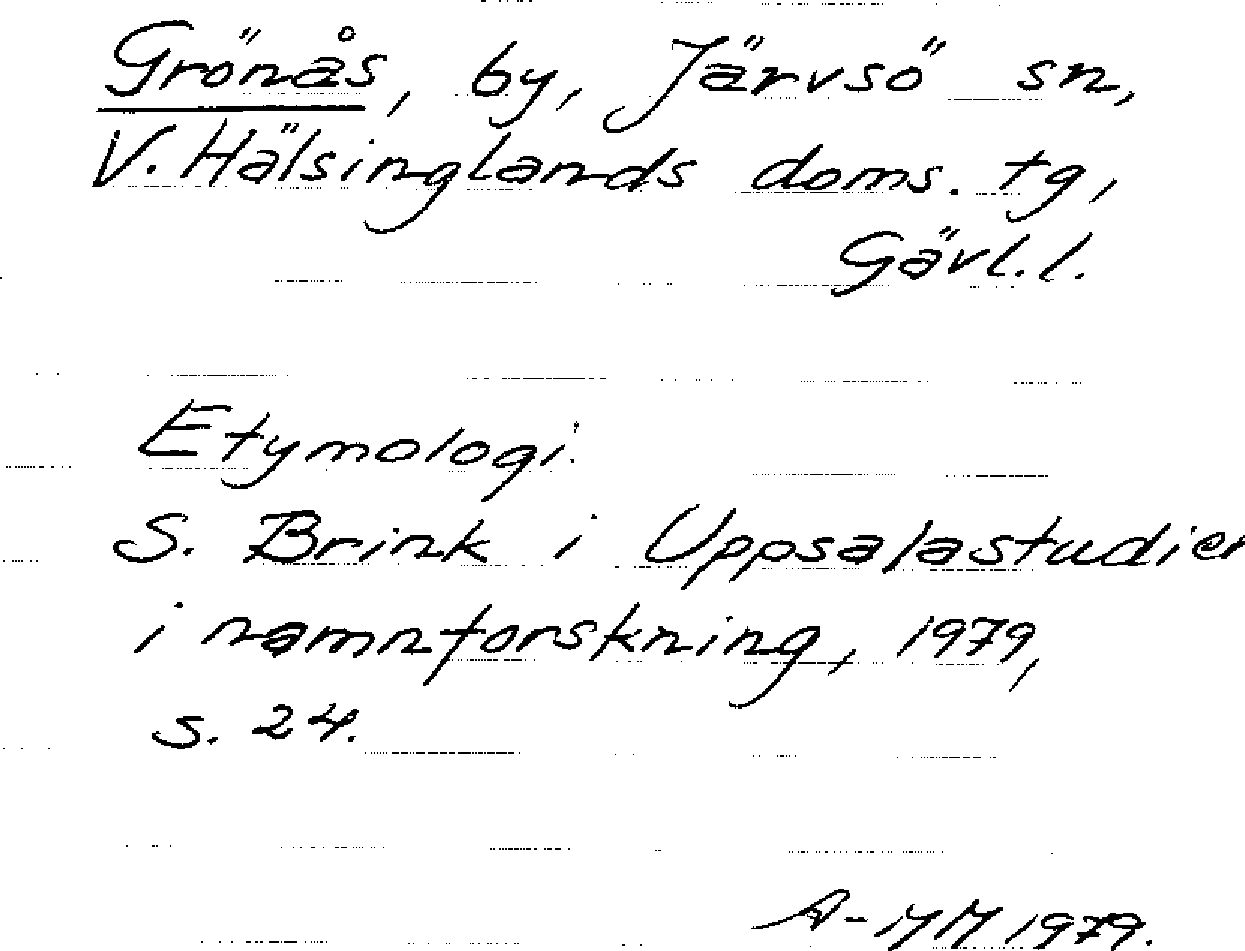 Grönås, by, Järvsö sn,
V. Hälsinglands doms. tg,
Gävl. l.
Etymologi:
S. Brink i Uppsalastudier
i namnforskning, 1979,
s. 24.
A-MM 1979.